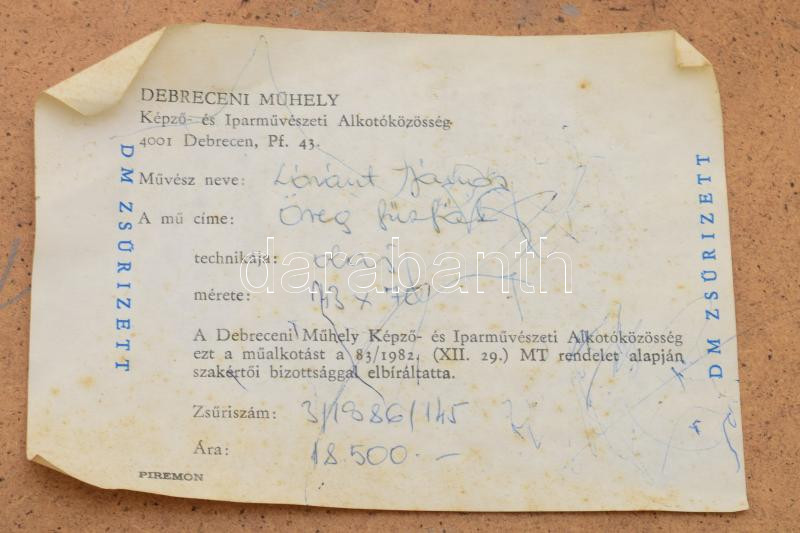 DEBRECENI MŰHELY
Képző- és Iparművészeti Alkotóközösség
4001 Debrecen, Pf. 43.
Művész neve: Lóránt János
A mű címe: Öreg fűzfák
technikája: olaj
mérete: x 70
A Debreceni Műhely Képző- és Iparművészeti Alkotóközösség
ezt a műalkotást a 83/1982. (XII. 29.) MT rendelet alapján
szakértői bizottsággal elbíráltatta.
Zsűriszám: 3/1986/145
Ára: 18.500.—
PIREMON
DM ZSŰRIZETT
DM ZSŰRIZETT
darabanth